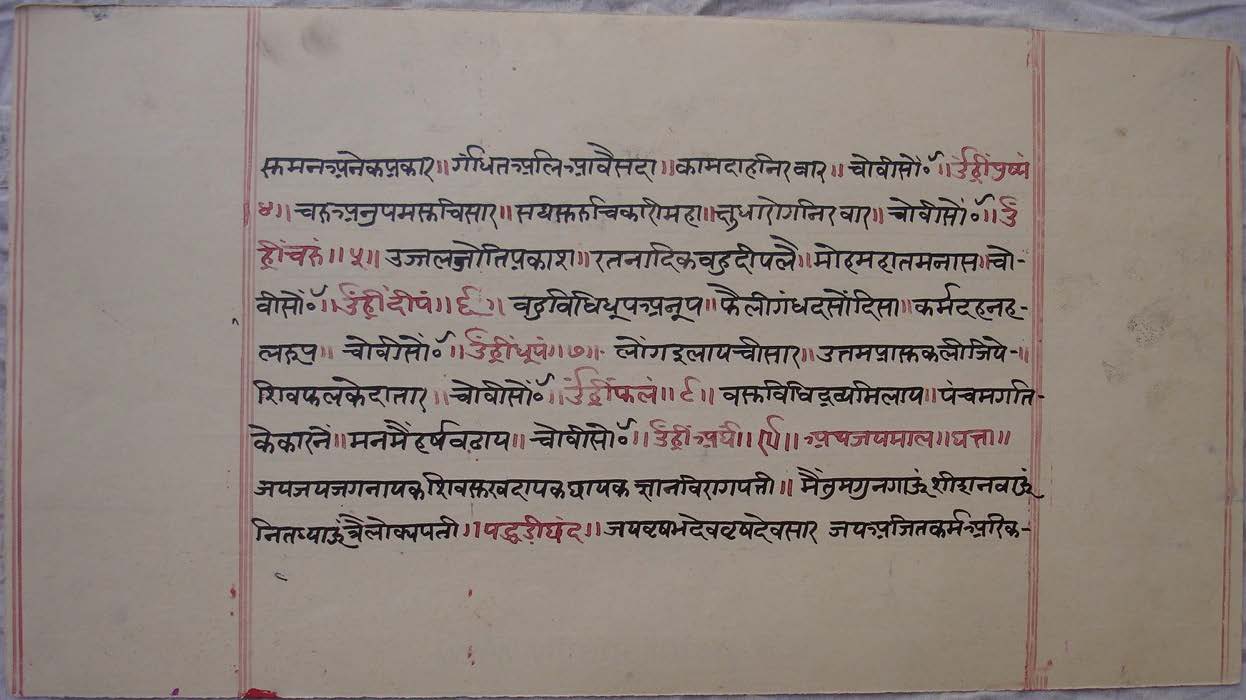 सुमनअनेकप्रकार॥ गंधितअलिआवैसदा॥ कामदाहनिरवार॥ चोवीसों॰॥ उंह्रींपुष्पं
॥४॥ चरुअनुपमसुचिसार॥ सद्यसुरुचिकारीमहा॥ क्षुधारोगनिरवार॥ चोवीसों॰॥ उं
ह्रींचरुं॥५॥ उज्जलजोतिप्रकाश॥ रतनादिकबहुदीपलै॥ मोहमहातमनास॥ चो-
वीसों॰॥ उंह्रींदीपं॥६॥ बहुविधिधूपअनूप॥ फैलीगंधदसोंदिसा॥ कर्मदहनह-
लहुप्र॥ चोवीसों॰॥ उंह्रींधूपं॥७॥ लोंगइलायचीसार॥ उत्तमप्रासुकलीजिये-॥
शिवफलकेदातार॥ चोवीसों॰॥ उंह्रींफलं॥८॥ वसुविधिद्रव्यमिलाय॥ पंचमगति-
केकारनें॥ मनमैंहर्षबढाय॥ चोवीसों॰॥ उंह्रींअर्घं॥९॥ अथजयमाल॥ घत्ता॥
जयजयजगनायकशिवसुखदायकघायक ज्ञानविरागपती॥ मैंतुमगुनगाऊंशीशनवाऊं
नितध्याऊंत्रैलोक्यपती॥ पद्धडीछंद॥ जयवृषभदेववृषदेवसार जयअजितकर्मअरिक-